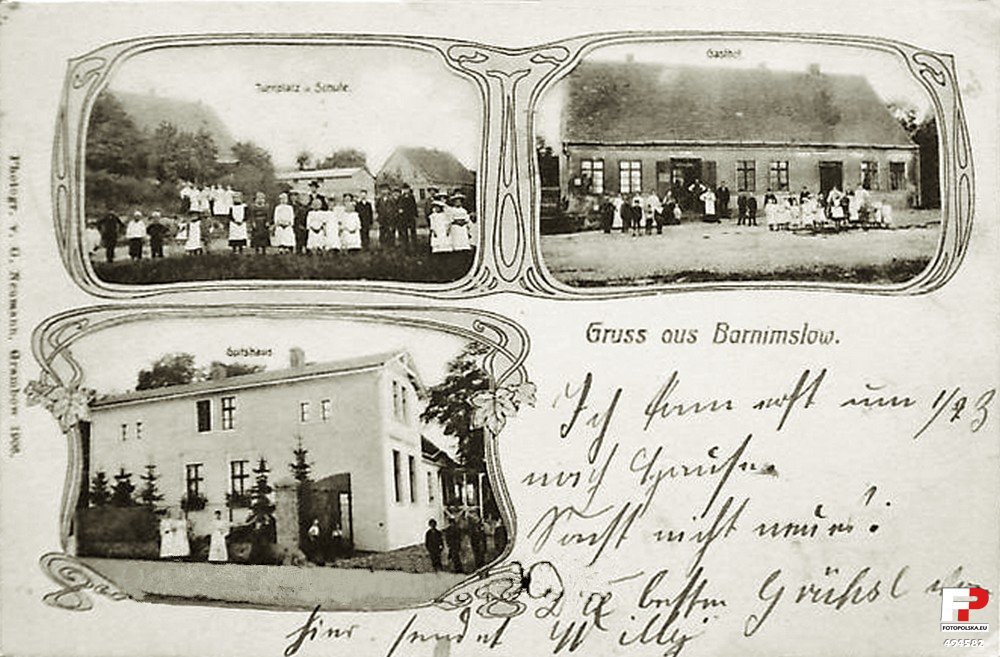 Turnplatz u. Schule.
Gasthof.
Photogr. v. G. Neumann, Grambow 1906.
Gutshaus
Gruss aus Barnimslow.
Ich kam erst um 1/2 3
nach Hause.
Sonst nichts neues!
Die besten Grüße
hier sendet Willy
FP
FOTOPOLSKA.EU